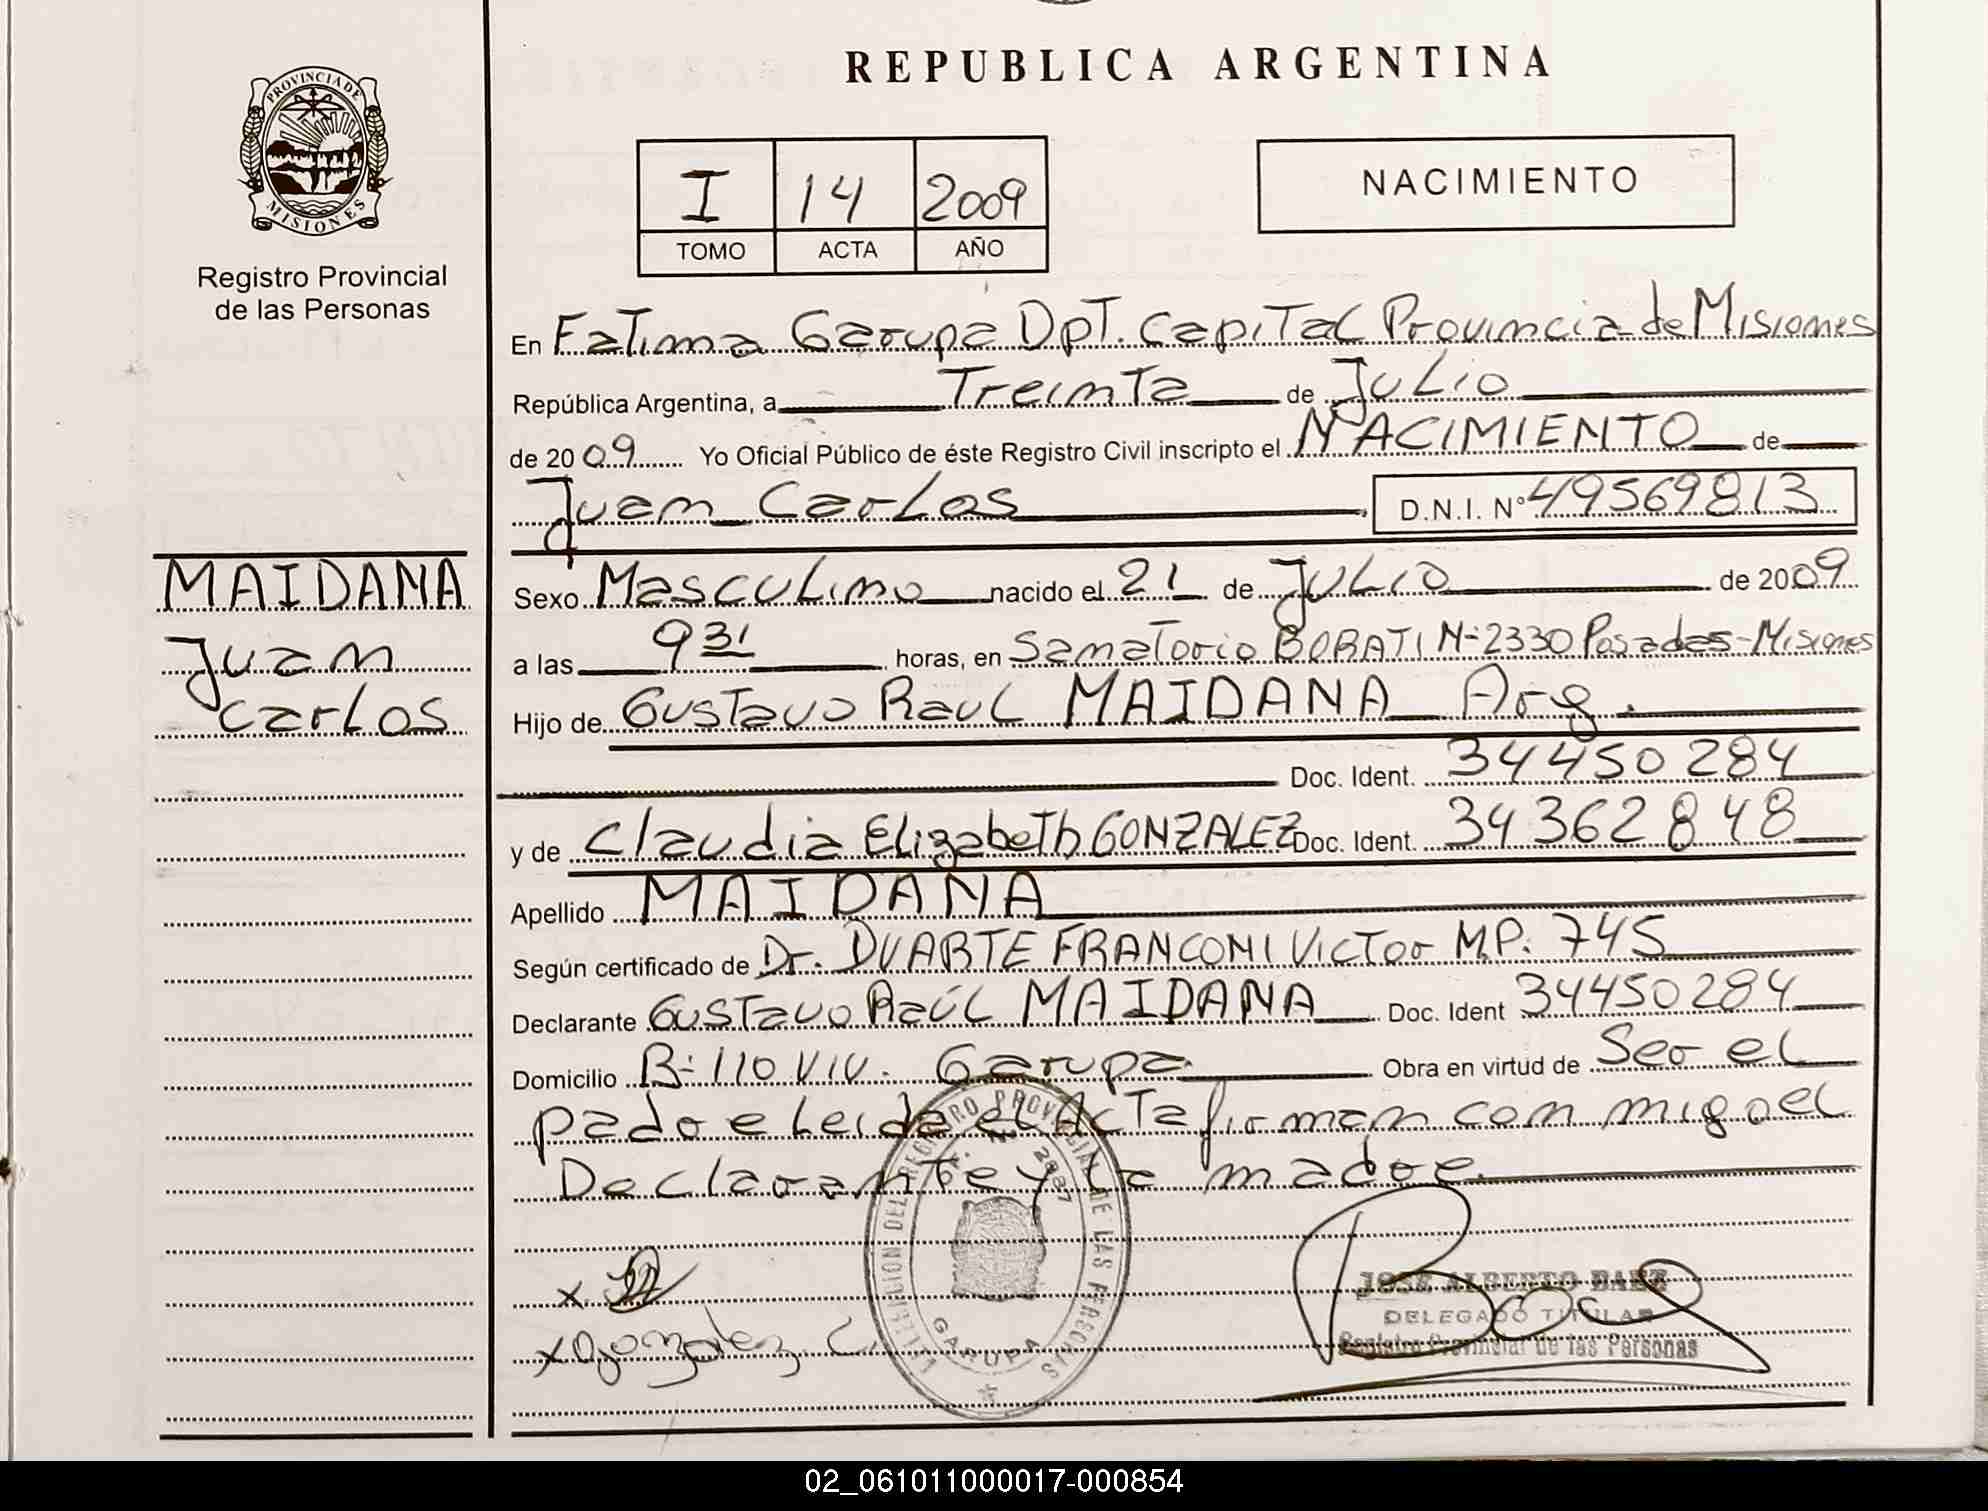 REPUBLICA ARGENTINA
PROVINCIA DE
MISIONES
Registro Provincial
de las Personas
I 14 2009
TOMO ACTA AÑO
NACIMIENTO
En Fatima Garupa Dpt. Capital Provincia de Misiones
República Argentina, a Treinta de Julio
de 2009 Yo Oficial Público de éste Registro Civil inscripto el NACIMIENTO de
Juan Carlos D.N.I. Nº 49569813
MAIDANA
Juan
Carlos
Sexo Masculino nacido el 21 de Julio de 2009
a las 9 31 horas, en Sanatorio BORATTI Nº 2330 Posadas-Misiones
Hijo de Gustavo Raul MAIDANA Arg.
Doc. Ident. 34450284
y de Claudia Elizabeth GONZALEZ Doc. Ident. 34362848
Apellido MAIDANA
Según certificado de Dr. DUARTE FRANCONI Victor M.P. 745
Declarante Gustavo Raúl MAIDANA Doc. Ident 34450284
Domicilio Bº 110 VIV. Garupa Obra en virtud de Ser el
padre leida el Acta firman conmigo el
Declarante y la madre.
DELEGACION DEL REGISTRO PROVINCIAL DE LAS PERSONAS
2887
GARUPA
x
x Gonzalez C
JOSE ALBERTO BAEZ
DELEGADO TITULAR
Registro Provincial de las Personas
02_061011000017-000854